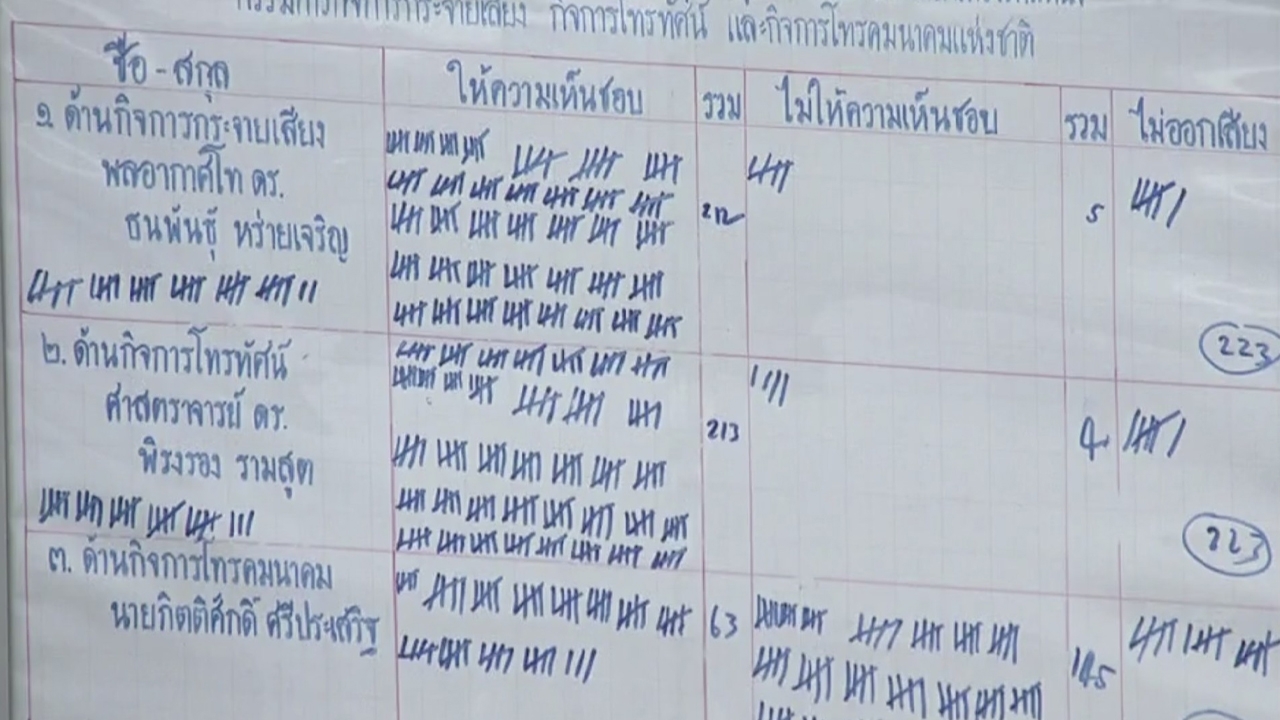 กิจการกระจายเสียง กิจการโทรทัศน์ และกิจการโทรคมนาคมแห่งชาติ
ชื่อ - สกุล ให้ความเห็นชอบ รวม ไม่ให้ความเห็นชอบ รวม ไม่ออกเสียง
๑. ด้านกิจการกระจายเสียง
พลอากาศโท ดร.
ธนพันธุ์ หร่ายเจริญ 212 5
223
๒. ด้านกิจการโทรทัศน์
ศาสตราจารย์ ดร. 213 4
พิรงรอง รามสูต
223
๓. ด้านกิจการโทรคมนาคม
นายกิตติศักดิ์ ศรีประเสริฐ 63 145